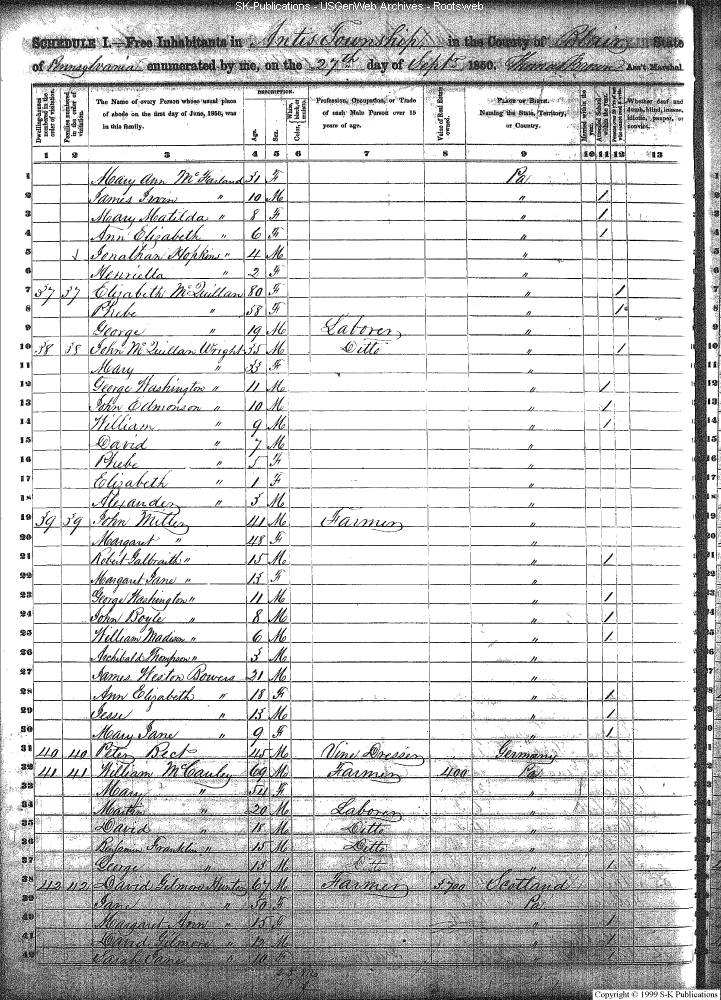 SK-Publications - USGenWeb Archives - Rootsweb
SCHEDULE I.—Free Inhabitants in Antis Township in the County of Blair State
of Pennsylvania enumerated by me, on the 27th day of Sept 1850. Ass't Marshal
Dwelling-houses numbered in the order of visitation.
Families numbered in the order of visitation.
The Name of every Person whose usual place of abode on the first day of June, 1850, was in this family.
DESCRIPTION.
Age.
Sex.
Color, White, black, or mulatto.
Profession, Occupation, or Trade of each Male Person over 15 years of age.
Value of Real Estate owned.
PLACE OF BIRTH. Naming the State, Territory, or Country.
Married within the year.
Attended School within the year.
Whether deaf and dumb, blind, insane, idiotic, pauper, or convict.
1 2 3 4 5 6 7 8 9 10 11 12 13
1 Mary Ann McFarland 31 F Pa
2 James Irvin " 10 M " 1
3 Mary Matilda " 8 F " 1
4 Ann Elizabeth " 6 F " 1
5 Jonathan Hopkins " 4 M "
6 Henrietta " 2 F "
7 37 37 Elizabeth McQuillan 80 F " 1
8 Phebe " 58 F " 1
9 George " 19 M Laborer "
10 38 38 John McQuillan Wright 35 M Ditto " 1
11 Mary " 33 F "
12 George Washington " 11 M " 1
13 John Edmonson " 10 M " 1
14 William " 9 M " 1
15 David " 7 M "
16 Phebe " 5 F "
17 Elizabeth " 1 F "
18 Alexander " 3 M "
19 39 39 John Miller 41 M Farmer "
20 Margaret " 48 F "
21 Robert Galbraith " 15 M " 1
22 Margaret Jane " 13 F "
23 George Washington " 11 M " 1
24 John Boyle " 8 M " 1
25 William Madison " 6 M " 1
26 Archibald Thompson " 3 M "
27 James Weston Bowers 21 M "
28 Ann Elizabeth " 18 F " 1
29 Jesse " 13 M " 1
30 Mary Jane " 9 F " 1
31 40 40 Peter Beck 45 M Vine Dresser Germany
32 41 41 William McCauley 69 M Farmer 400 Pa
33 Mary " 54 F "
34 Martin " 20 M Laborer "
35 David " 18 M Ditto "
36 Benjamin Franklin " 15 M Ditto "
37 George " 13 M Ditto " 1
38 42 42 David Gilmore Hunter 67 M Farmer 3700 Scotland
39 Jane " 50 F Pa
40 Margaret Ann " 15 F " 1
41 David Gilmore " 12 M " 1
42 Sarah Jane " 10 F " 1
Copyright © 1999 S-K Publications